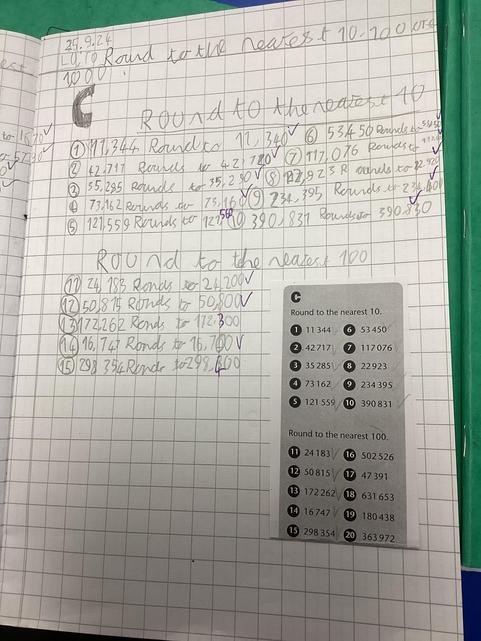 25.9.24
LO TO Round to the nearest 10-100 or
1000
C
ROUND TO the nearest 10
① 11,344 Round to 11,340 ✓ ⑥ 53450 Rounds to
② 42,717 Rounds to 42,720 ✓ ⑦ 117,076 Rounds to
③ 35,285 Rounds to 35,290 ✓ ⑧ 22,923 Rounds to 22,920
④ 73,162 Rounds to 73,160 ✓ ⑨ 234,395 Rounds to 234,400
⑤ 121,559 Rounds to 121,560 ⑩ 390,831 Rounds to 390,830
ROUND to the nearest 100
⑪ 24,183 Ronds to 24,200 ✓
⑫ 50,815 Ronds to 50,800 ✓
⑬ 172,262 Ronds to 172,300
⑭ 16,747 Ronds to 16,700 ✓
⑮ 298 354 Ronds to 298,400
C
Round to the nearest 10.
1 11 344 6 53 450
2 42 717 7 117 076
3 35 285 8 22 923
4 73 162 9 234 395
5 121 559 10 390 831
Round to the nearest 100.
11 24 183 16 502 526
12 50 815 17 47 391
13 172 262 18 631 653
14 16 747 19 180 438
15 298 354 20 363 972